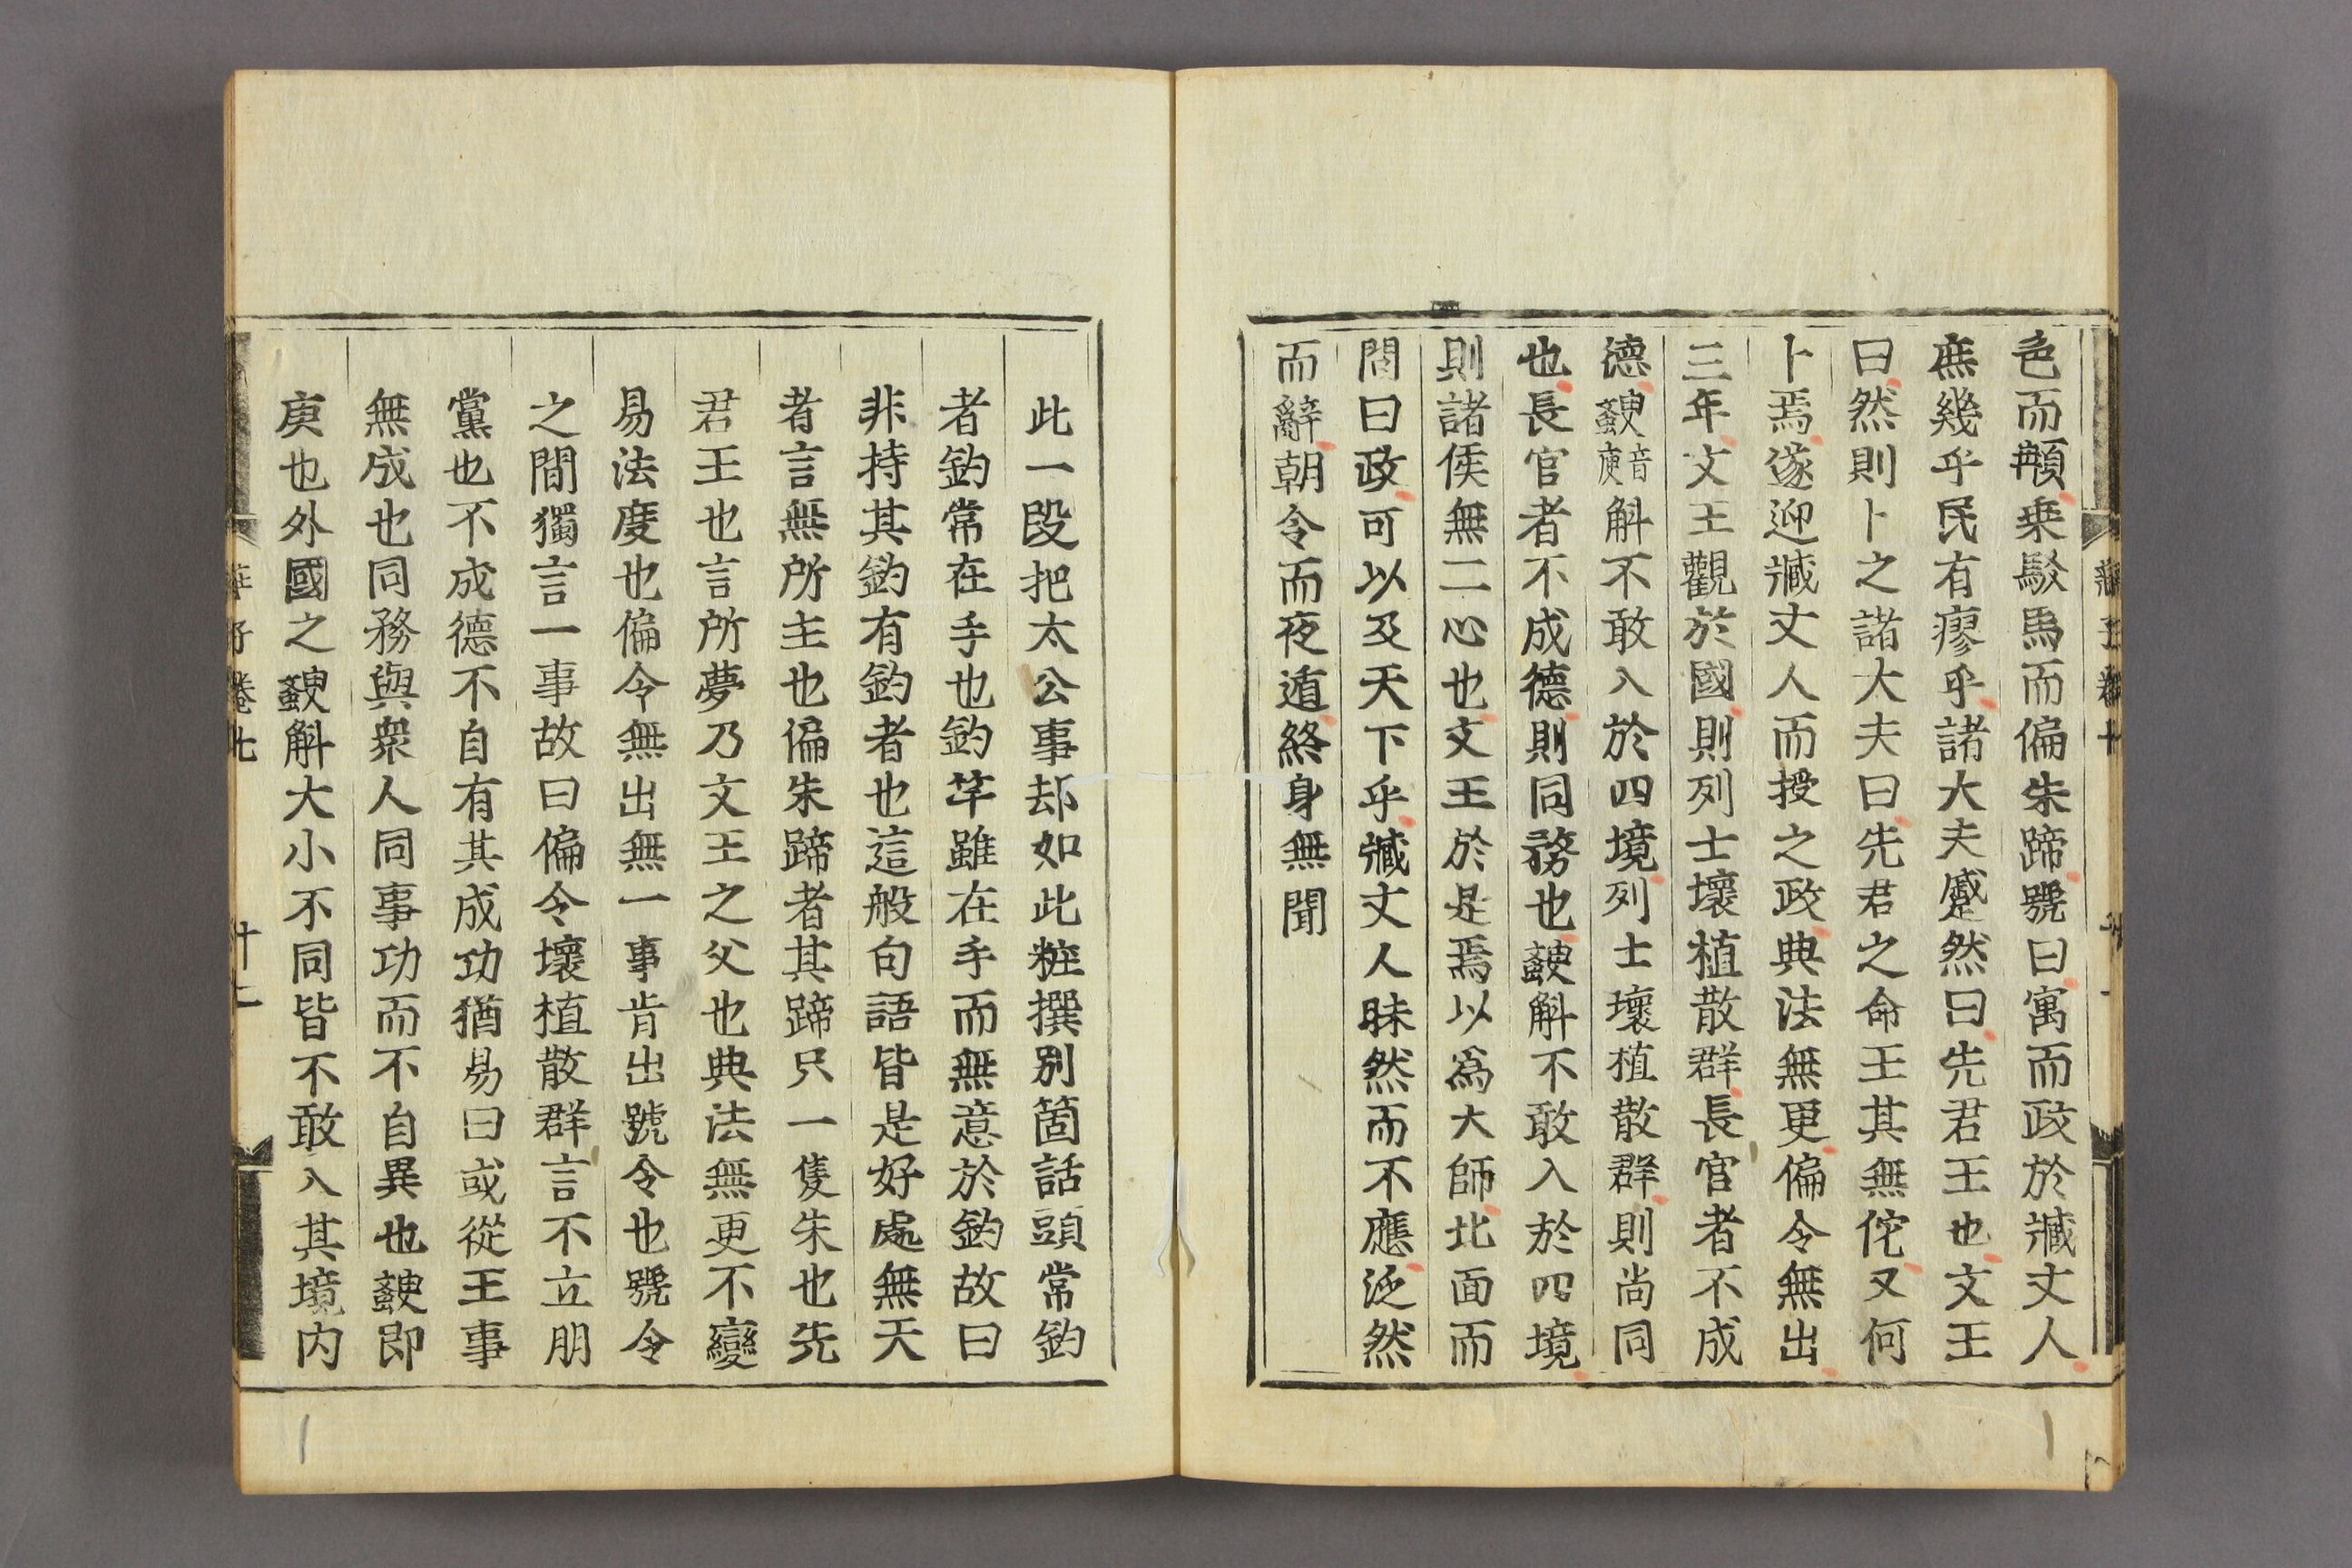 色而䫇乗駁馬而偏朱蹄號曰寓而政於臧丈人
庶幾乎民有瘳乎諸大夫蹙然曰先君王也文王
曰然則卜之諸大夫曰先君之命王其無佗又何
卜焉遂迎臧丈人而授之政典法無更偏令無出
三年文王觀於國則列士壞植散群長官者不成
德䠶音庾斛不敢入於四境列士壞植散群則尚同
也長官者不成德則同務也斛不敢入於四境
則諸侯無二心也文王於是焉以爲大師北面而
問曰政可以及天下乎臧丈人昧然而不應泛然
而辭朝令而夜遁終身無聞
此一段把太公事却如此粧撰别箇話頭常釣
者釣常在手也釣竿雖在手而無意於釣故曰
非持其釣有釣者也這般句語皆是好處無天
者言無所主也偏朱蹄者其蹄只一隻朱也先
君王也言所夢乃文王之父也典法無更不變
易法度也偏令無出無一事肯出號令也號令
之間獨言一事故曰偏令壞植散群言不立朋
黨也不成德不自有其成功猶易曰或從王事
無成也同務與衆人同事功而不自異也即
庾也外國之斛大小不同皆不敢入其境内